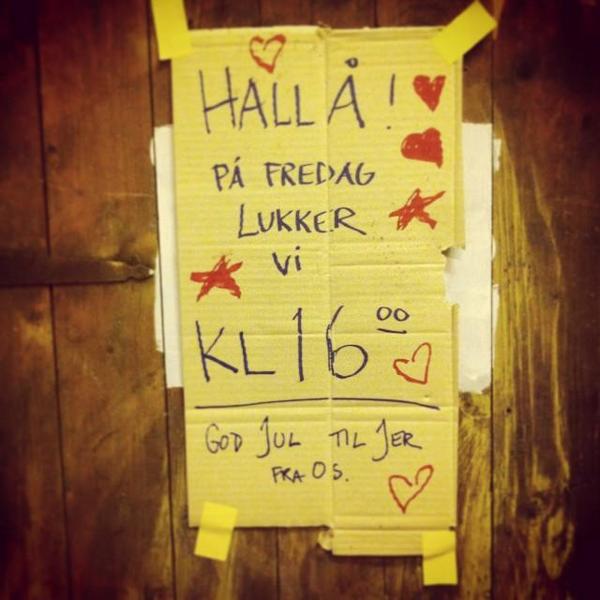 HALLÅ!
PÅ FREDAG
LUKKER
Vi
KL 16 00
GOD JUL TIL JER
FRA OS.